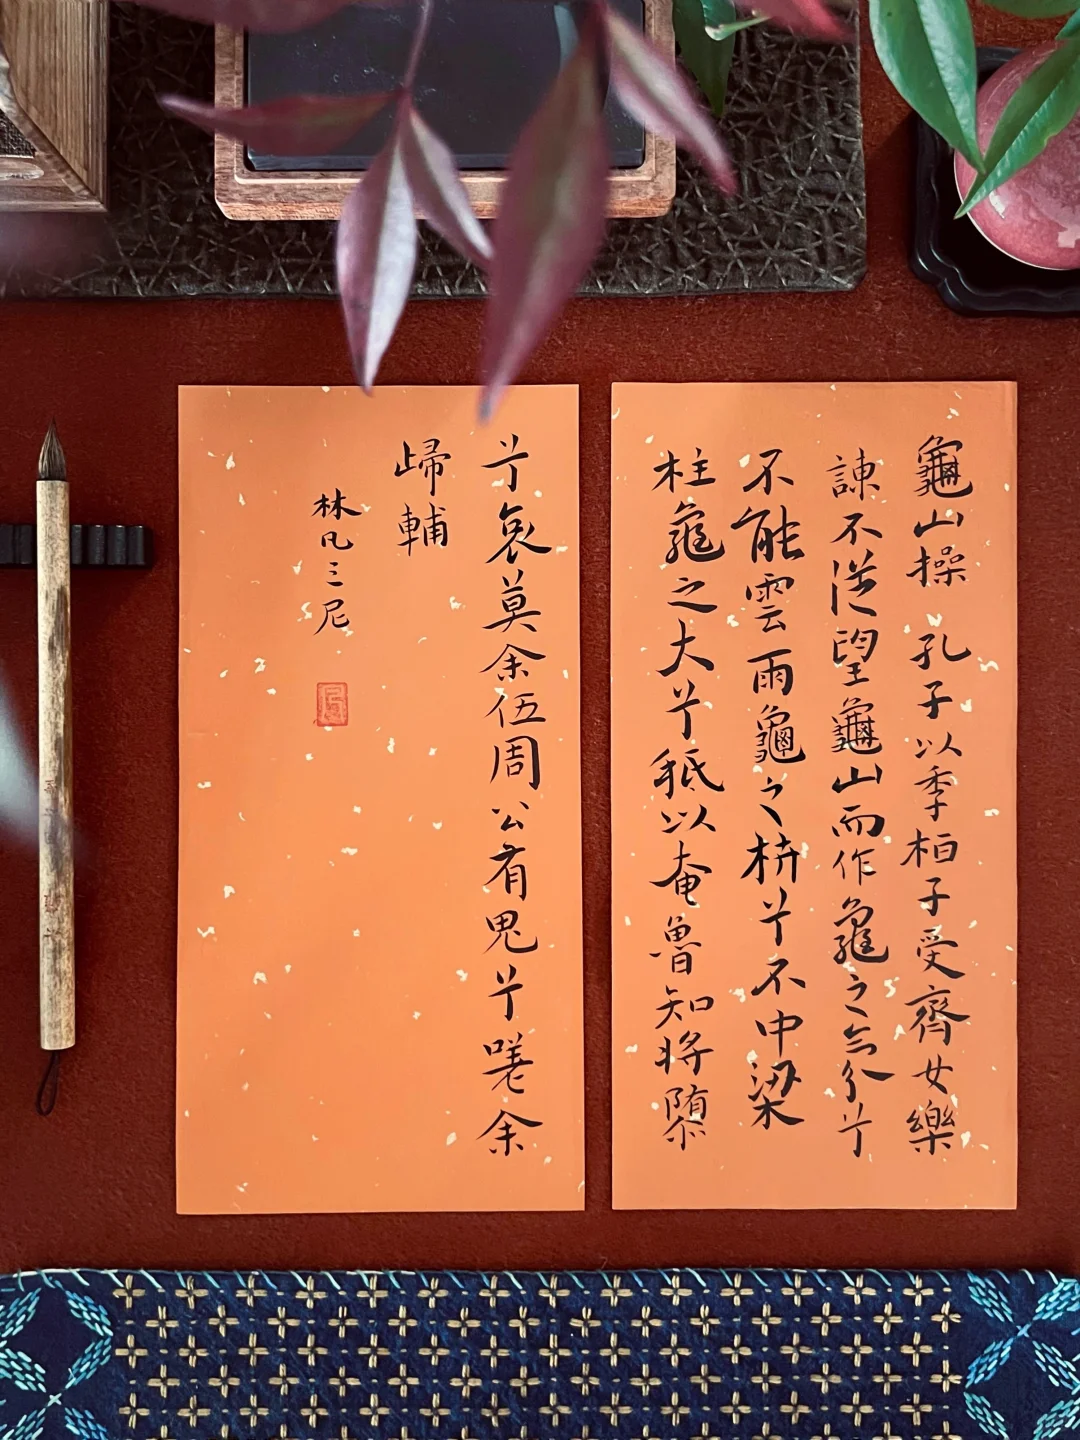 龜山操 孔子以季桓子受齊女樂
諫不從望龜山而作龜之氛兮
不能雲雨龜之枿兮不中梁
柱龜之大兮秖以奄魯知將隳
兮哀莫余伍周公有鬼兮嗟余
歸輔
林凡三尼